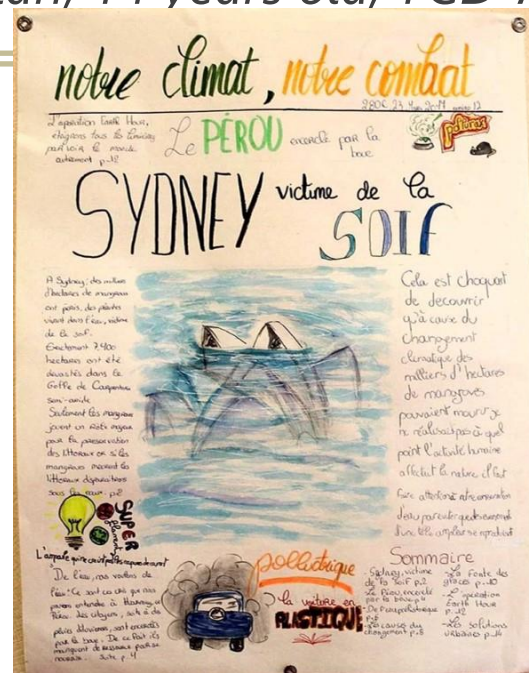 notre climat, notre combat
23 Mars 2017
L'opération Earth Hour,
éteignons tous les lumières
pour voir le monde
autrement p.12
Le PÉROU encerclé par la
boue
SYDNEY victime de la
SOIF
A Sydney, des milliers
d'hectares de mangroves
ont péris, des plantes
vivant dans l'eau, victime
de la soif.
Exactement 7400
hectares ont été
dévastés dans le
Golfe de Carpentarie
semi-aride
Seulement les mangroves
jouent un rôle majeur
pour la préservation
des littoraux or si les
mangroves meurent les
littoraux disparaitrons
sous les eaux. p.2
Cela est choquant
de decouvrir
qu'à cause du
changement
climatique des
milliers d'hectares
de mangroves
pouvaient mourir je
ne réalisait pas à quel
point l'activité humaine
affectait la nature il faut
faire attention à notre consommation
d'eau pour éviter que des
d'une telle ampleur se reproduisent
SUPER
L'ampoule qui ne
"De l'eau, nous voulons de
l'eau" Ce sont ces cris que nous
pouvons entendre à
Pérou. Des citoyens, suite à de
pluies diluviennes, sont encerclés
par la boue. De ce fait ils
manquent de ressources
Suite p.4
la voiture en
PLASTIQUE
Sommaire
- Sydney, victime
de la Soif p.2
- Le Pérou, encerclé
par la boue p.4
- La cause du
changement p.8
- La fonte des
glaces p.10
- L'opération
Earth Hour
p.12
- Les solutions
urbaines p.14